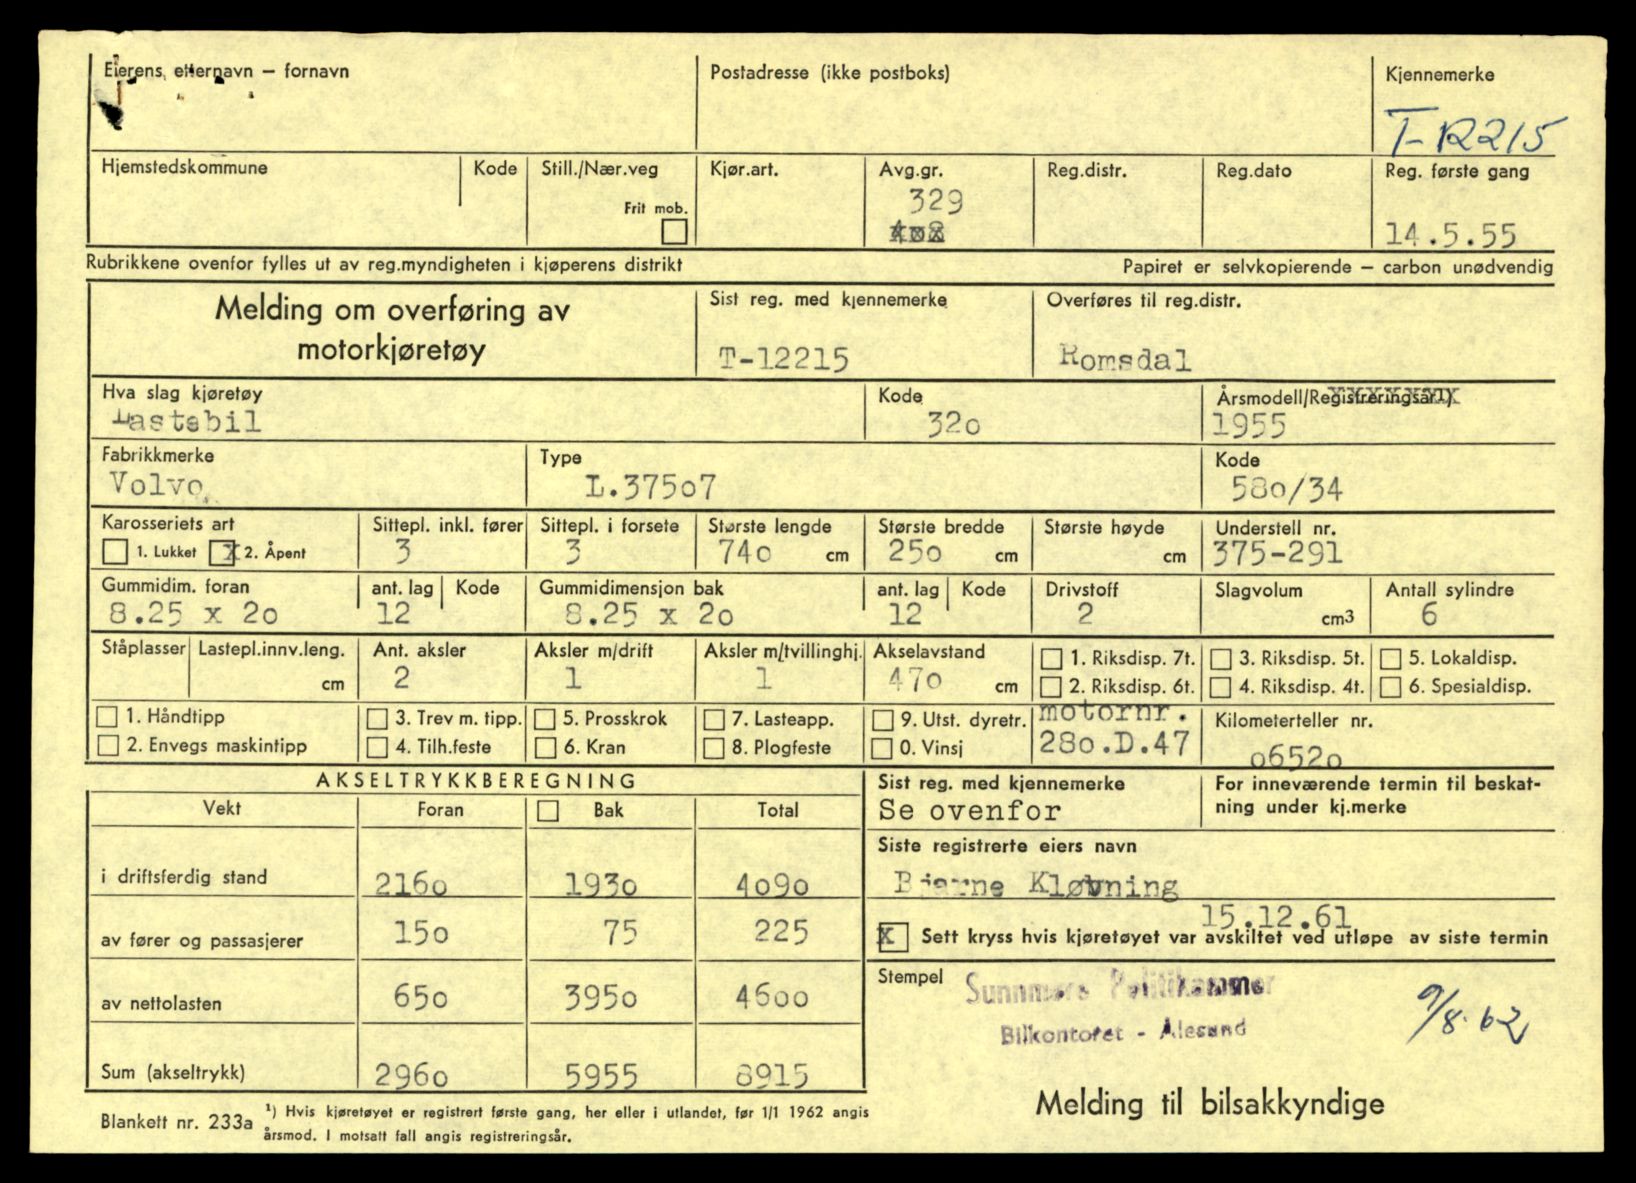 Eierens etternavn — fornavn Postadresse (ikke postboks) Kjennemerke
T-12215
Hjemstedskommune Kode Still./Nær.veg Kjør.art. Avg.gr. Reg.distr. Reg.dato Reg. første gang
329
Frit mob.
14.5.55
Rubrikkene ovenfor fylles ut av reg.myndigheten i kjøperens distrikt Papiret er selvkopierende — carbon unødvendig
Melding om overføring av Sist reg. med kjennemerke Overføres til reg.distr.
motorkjøretøy T-12215 Romsdal
Hva slag kjøretøy Kode Årsmodell/Registreringsår1)
Lastebil 320 1955
Fabrikkmerke Type Kode
Volvo L.37507 580/34
Karosseriets art Sittepl. inkl. fører Sittepl. i forsete Største lengde Største bredde Største høyde Understell nr.
1. Lukket X 2. Åpent 3 3 740 cm 250 cm cm 375-291
Gummidim. foran ant. lag Kode Gummidimensjon bak ant. lag Kode Drivstoff Slagvolum Antall sylindre
8.25 x 20 12 8.25 x 20 12 2 cm3 6
Ståplasser Lastepl.innv.leng. Ant. aksler Aksler m/drift Aksler m/tvillinghj. Akselavstand 1. Riksdisp. 7t. 3. Riksdisp. 5t. 5. Lokaldisp.
cm 2 1 1 470 cm 2. Riksdisp. 6t. 4. Riksdisp. 4t. 6. Spesialdisp.
1. Håndtipp 3. Trev m. tipp. 5. Prosskrok 7. Lasteapp. 9. Utst. dyretr. motornr. Kilometerteller nr.
2. Envegs maskintipp 4. Tilh.feste 6. Kran 8. Plogfeste 0. Vinsj 280.D.47 06520
AKSELTRYKKBEREGNING Sist reg. med kjennemerke For inneværende termin til beskat-
Vekt Foran Bak Total Se ovenfor ning under kj.merke
Siste registrerte eiers navn
i driftsferdig stand 2160 1930 4090 Bjarne Kløvning
15.12.61
av fører og passasjerer 150 75 225 X Sett kryss hvis kjøretøyet var avskiltet ved utløpe av siste termin
Stempel Sunnmøre Politikammer
av nettolasten 650 3950 4600 9/8-62
Bilkontoret - Ålesund
Sum (akseltrykk) 2960 5955 8915
Melding til bilsakkyndige
Blankett nr. 233a 1) Hvis kjøretøyet er registrert første gang, her eller i utlandet, før 1/1 1962 angis
årsmod. I motsatt fall angis registreringsår.